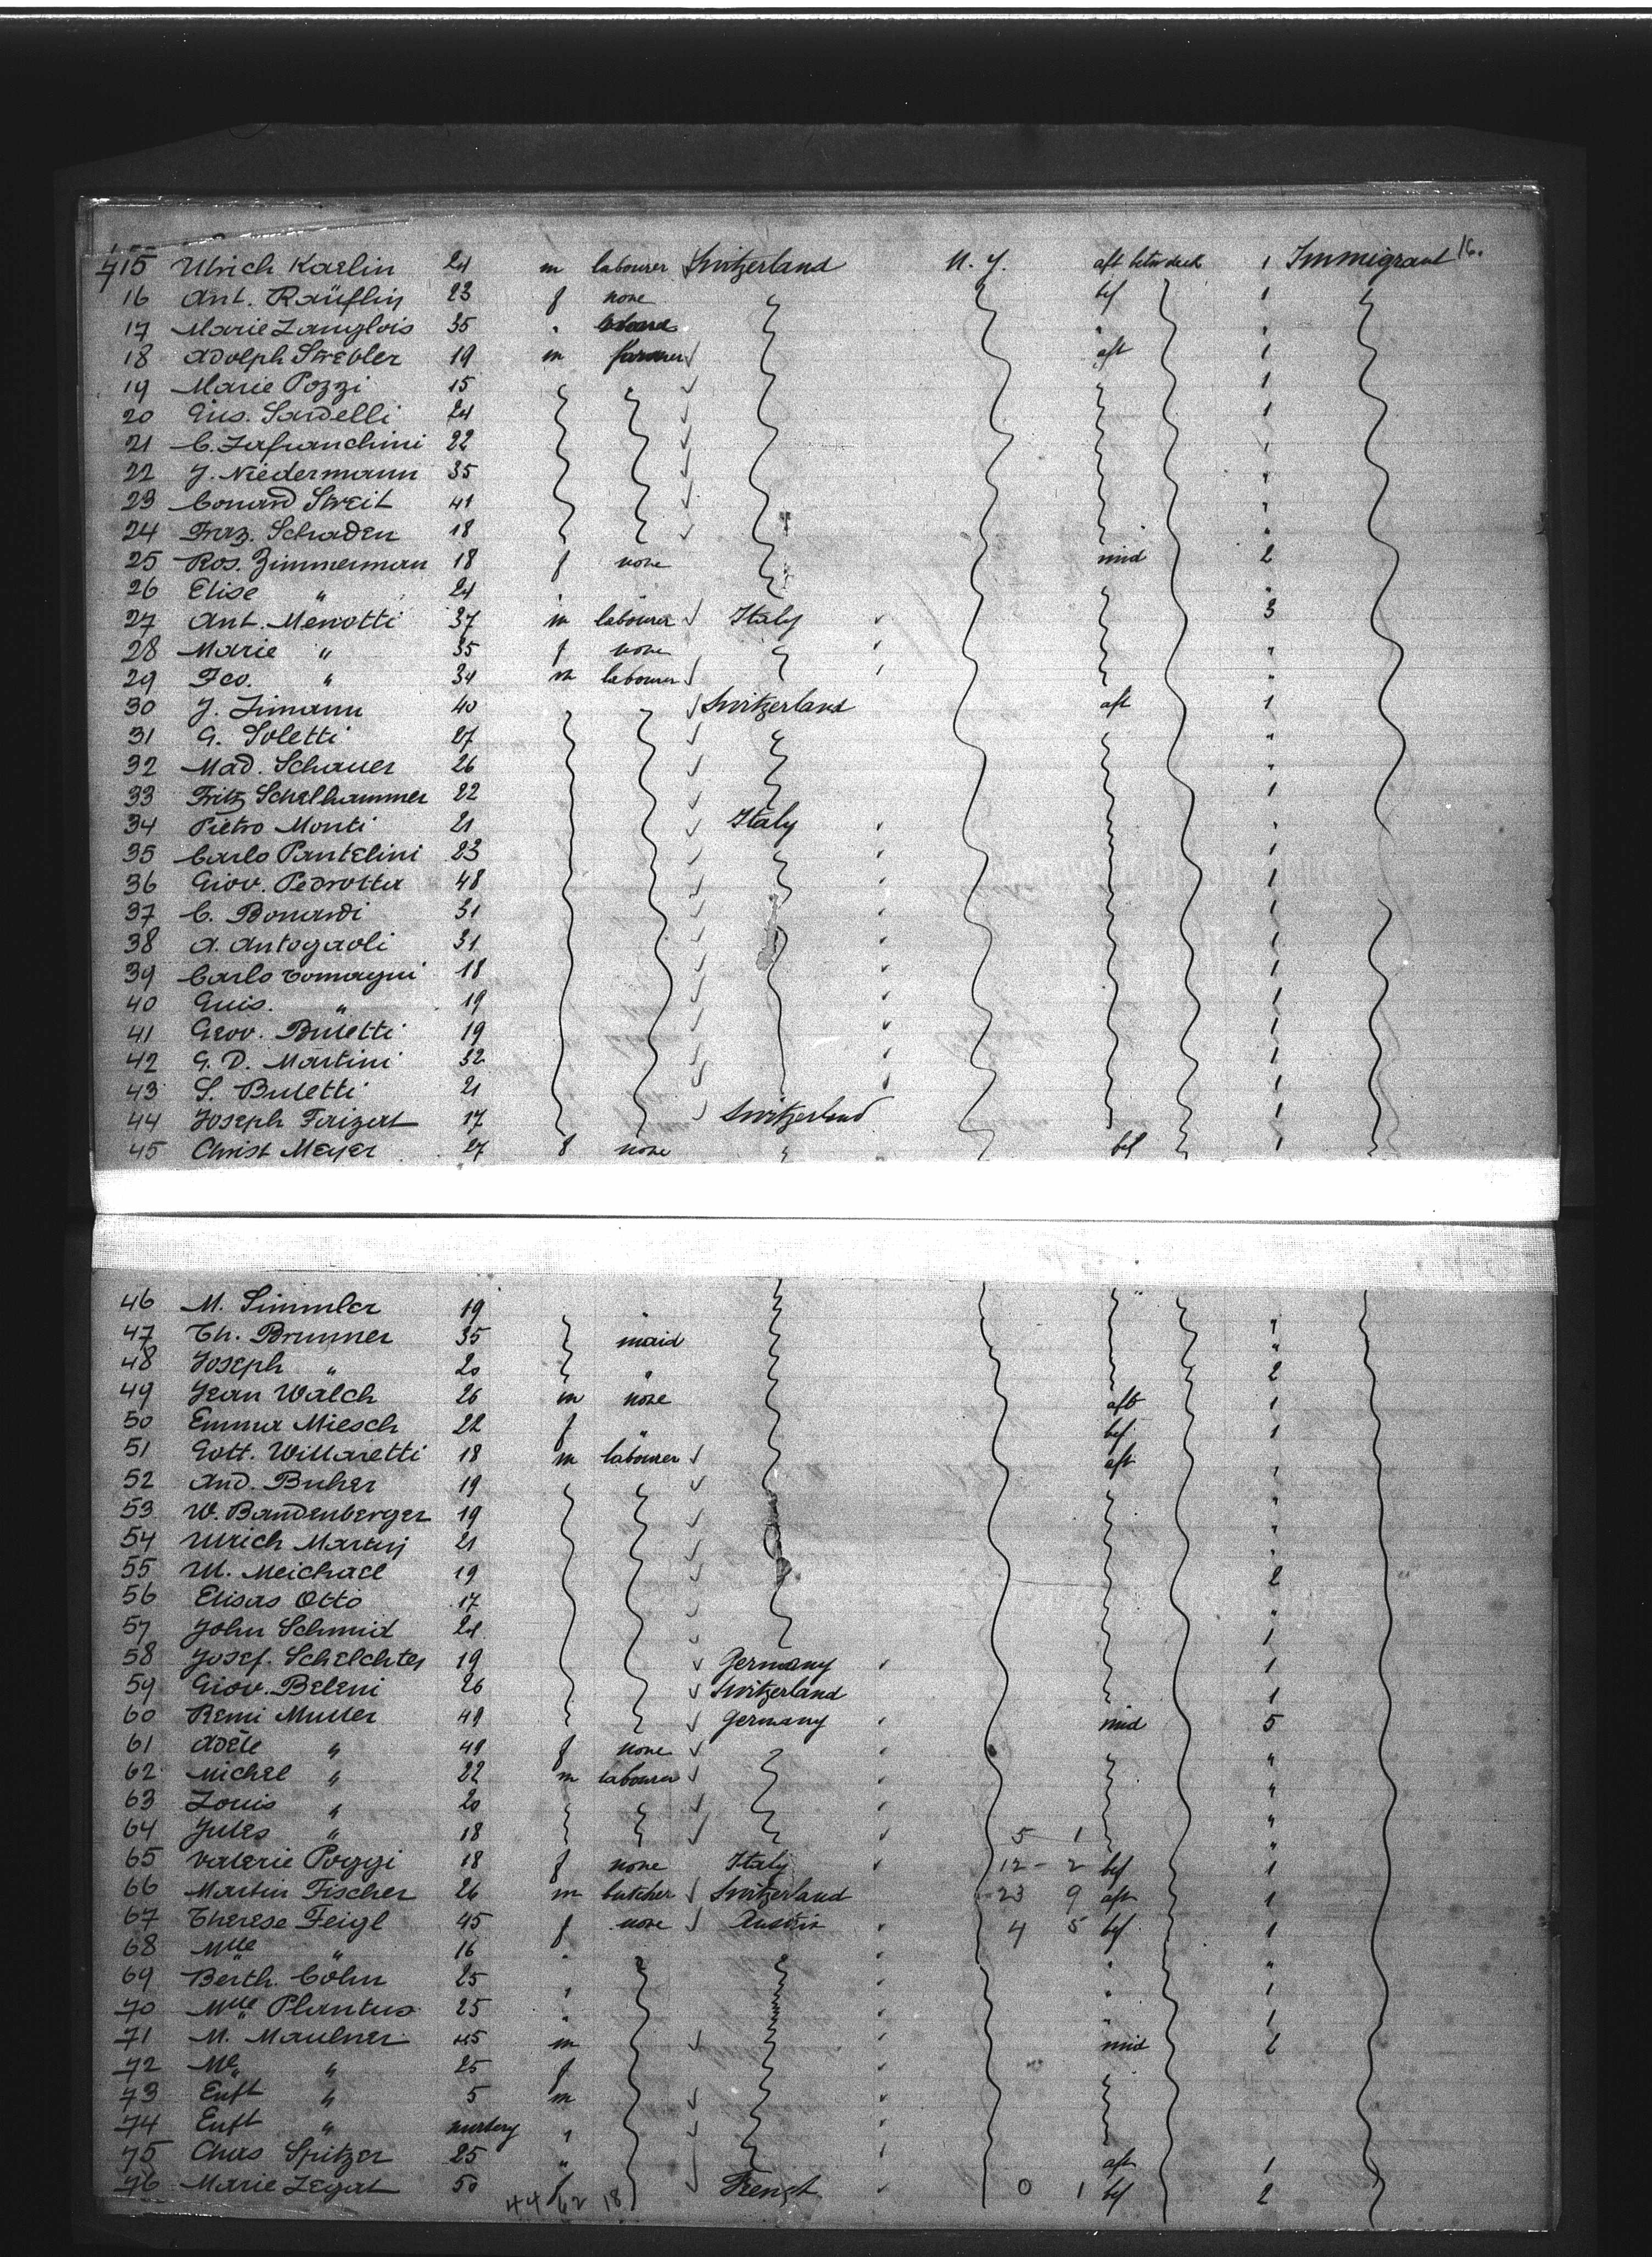 415 Ulrich Kaelin 24 m labourer Switzerland N.Y. aft betw deck 1 Immigrant 16.
16 Ant. Räuflin 23 f none bef 1
17 Marie Langlois 35 "
18 Adolph Strebler 19 m farmer aft 1
19 Marie Pozzi 15 1
20 Gius. Sardelli 24 1
21 C. Zafranchini 22
22 J. Niedermann 35 "
23 Conard Streit 41 "
24 Frz. Schaden 18 "
25 Ros. Zimmerman 18 f none mid 2
26 Elise " 24 "
27 Ant. Menotti 37 m labourer Italy 3
28 Marie " 35 f none "
29 Fco. " 34 m labourer "
30 J. Zimann 40 Switzerland aft 1
31 G. Soletti 27 "
32 Mad. Schauer 26 "
33 Fritz Schelhammer 22 1
34 Pietro Monti 21 Italy
35 Carlo Pantelini 23 1
36 Giov. Pedrotta 48 1
37 C. Bonardi 31 1
38 A. Antogaoli 31 1
39 Carlo Tomagni 18 1
40 Guis. " 19 1
41 Geov. Buletti 19 1
42 G. D. Martini 32 1
43 S. Buletti 21 1
44 Joseph Faizat 17 Switzerland 1
45 Christ Meyer 27 f none " bef 1
46 M. Simmler 19 "
47 Th. Brunner 35 maid "
48 Joseph " 20 " 2
49 Jean Walch 26 m none aft 1
50 Emma Miesch 22 f " bef 1
51 Gott. Willaretti 18 m labourer aft
52 And. Buher 19 "
53 W. Bandenberger 19 "
54 Ulrich Martin 21 "
55 M. Meichael 19 2
56 Elisas Otto 17 "
57 John Schmid 21 1
58 Josef. Schelchter 19 Germany 1
59 Giov. Beleni 26 Switzerland 1
60 Remi Muller 49 Germany mid 5
61 Adèle " 49 f none "
62 Michel " 22 m labourer "
63 Louis " 20 "
64 Jules " 18 5 1 "
65 Valerie Poggi 18 f none Italy 12 - 2 bef 1
66 Martin Fischer 26 m butcher Switzerland 23 9 aft 1
67 Therese Feigl 45 f none Austria 4 5 bef 1
68 Mlle " 16 " " "
69 Berth. Cohn 25 " " 1
70 Mlle Plantus 25 " " 1
71 M. Maulner 45 m mid 2
72 Me " 25 f
73 Enft " 5 m
74 Enft " "
75 Chas Spitzer 25 " aft 1
76 Marie Legat 50 f French 0 1 bef 2
44 62 18